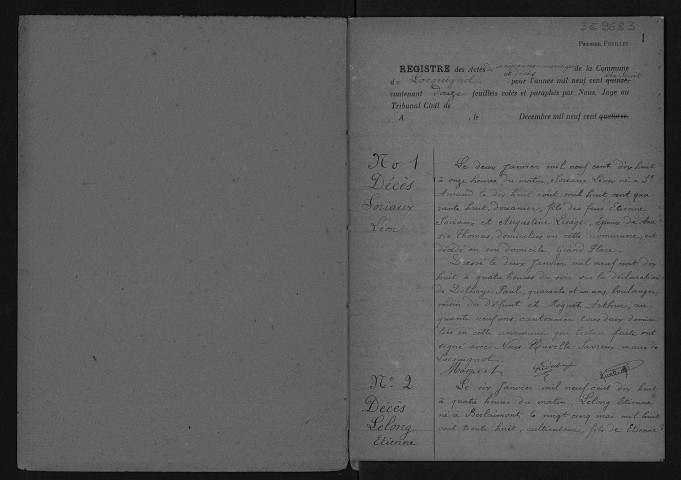 3E 9683
1
PREMIER FEUILLET
REGISTRE des Actes de naissance mariage de la Commune
et décès dix huit
de Locquignol pour l'année mil neuf cent quinze,
contenant douze feuillets cotés et paraphés par Nous, Juge au
Tribunal Civil de
A , le Décembre mil neuf cent quatorze.
No 1
Décès
Soriaux
Léon
Le deux Janvier mil neuf cent dix huit
à onze heures du matin, Soriaux Léon né à St
Amand le dix huit août mil huit cent qua
rante huit, douanier, fils des feus Etienne
Soriaux et Augustine Lesage, époux de
Thomas, domiciliés en cette commune, est
décédé en son domicile Grand Place.
Dressé le deux Janvier mil neuf cent dix
huit à quatre heures du soir sur la déclaration
de Delhaye Paul, quarante et un ans, boulanger,
voisin du défunt et Arthur, cin
quante neuf ans, cantonnier tous deux domici
liés en cette commune qui lecture faite ont
signé avec Nous maire de
Locquignol.
No 2
Décès
Lelong
Etienne
Le six Janvier mil neuf cent dix huit
à quatre heures du matin, Lelong Etienne
né à Berlaimont, le vingt cinq mai mil huit
cent trente huit, cultivateur, fils de Etienne